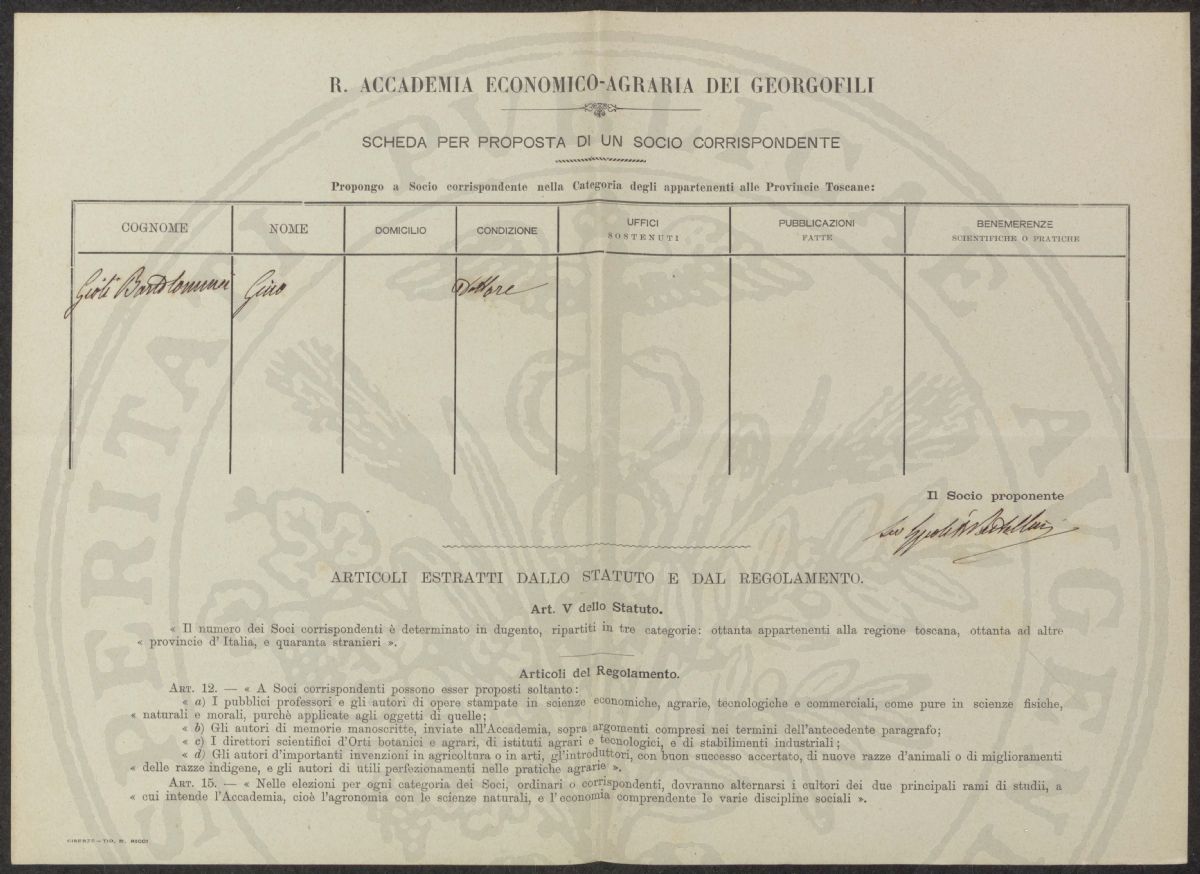 R. ACCADEMIA ECONOMICO-AGRARIA DEI GEORGOFILI
SCHEDA PER PROPOSTA DI UN SOCIO CORRISPONDENTE
Propongo a Socio corrispondente nella Categoria degli appartenenti alle Provincie Toscane:
COGNOME NOME DOMICILIO CONDIZIONE UFFICI SOSTENUTI PUBBLICAZIONI FATTE BENEMERENZE SCIENTIFICHE O PRATICHE
Gioli Bartolommei Gino Dottore
Il Socio proponente
ARTICOLI ESTRATTI DALLO STATUTO E DAL REGOLAMENTO.
Art. V dello Statuto.
« Il numero dei Soci corrispondenti è determinato in dugento, ripartiti in tre categorie: ottanta appartenenti alla regione toscana, ottanta ad altre
« provincie d'Italia, e quaranta stranieri ».
Articoli del Regolamento.
ART. 12. — « A Soci corrispondenti possono esser proposti soltanto:
« a) I pubblici professori e gli autori di opere stampate in scienze economiche, agrarie, tecnologiche e commerciali, come pure in scienze fisiche,
« naturali e morali, purchè applicate agli oggetti di quelle;
« b) Gli autori di memorie manoscritte, inviate all'Accademia, sopra argomenti compresi nei termini dell'antecedente paragrafo;
« c) I direttori scientifici d'Orti botanici e agrari, di istituti agrari e tecnologici, e di stabilimenti industriali;
« d) Gli autori d'importanti invenzioni in agricoltura o in arti, gl'introduttori, con buon successo accertato, di nuove razze d'animali o di miglioramenti
« delle razze indigene, e gli autori di utili perfezionamenti nelle pratiche agrarie ».
ART. 15. — « Nelle elezioni per ogni categoria dei Soci, ordinari o corrispondenti, dovranno alternarsi i cultori dei due principali rami di studii, a
« cui intende l'Accademia, cioè l'agronomia con le scienze naturali, e l'economia comprendente le varie discipline sociali ».
FIRENZE — TIP. M. RICCI